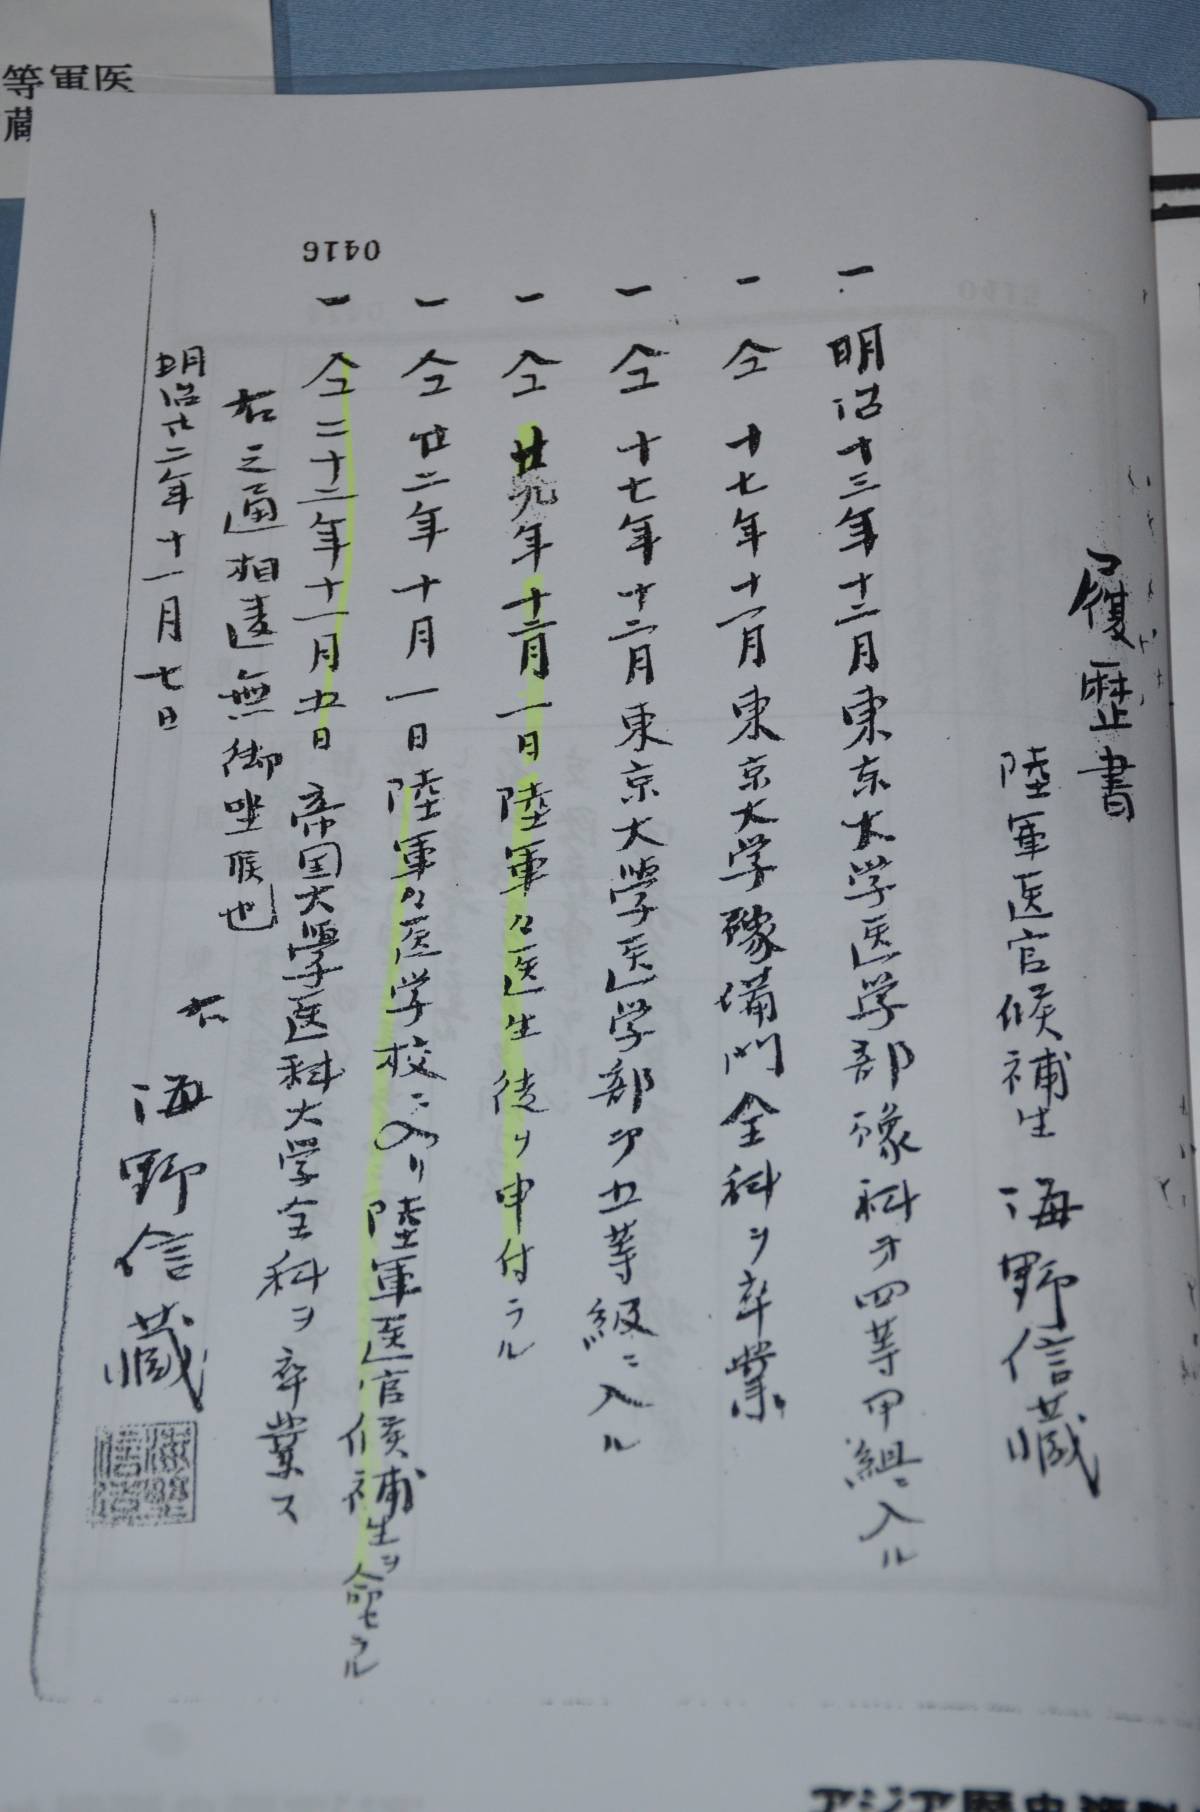 履歴書
陸軍医官候補生 海野信蔵
一 明治十三年十二月東京大学医学部豫科才四等甲組ニ入ル
一 仝 十七年十一月東京大学豫備門全科ヲ卒業
一 仝 十七年十二月東京大學医学部 五等級ニ入ル
一 仝 廿 年十二月一日陸軍々医生徒ヲ申付ラル
一 仝 廿二年十月一日陸軍々医学校ニ入リ陸軍医官候補生ヲ命セラル
一 仝二十二年十一月五日帝国大學医科大学全科ヲ卒業ス
右之通相違無御坐候也
右 海野信蔵
明治廿二年十一月七日
0416
等軍医
蔵
アジア歴史資料